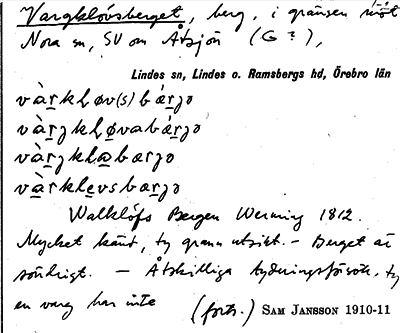 Vargklövsberget, berg, i gränsen mot
Nora sn, SV om Åtsjön (G?),
Lindes sn, Lindes o. Ramsbergs hd, Örebro län
và̱rkḷøv(s)bá̱rjə
và̱rjkḷø̱vabá̱rjə
và̱rjkḷa̱bærjə
và̱rkle̱vsbæ̱rjə
Walklöfs Bergen Werming 1812.
Mycket känt, ty grann utsikt. – Berget är
söndrigt. – Åtskilliga tydningsförsök, ty
en varg har inte (forts.) SAM JANSSON 1910-11